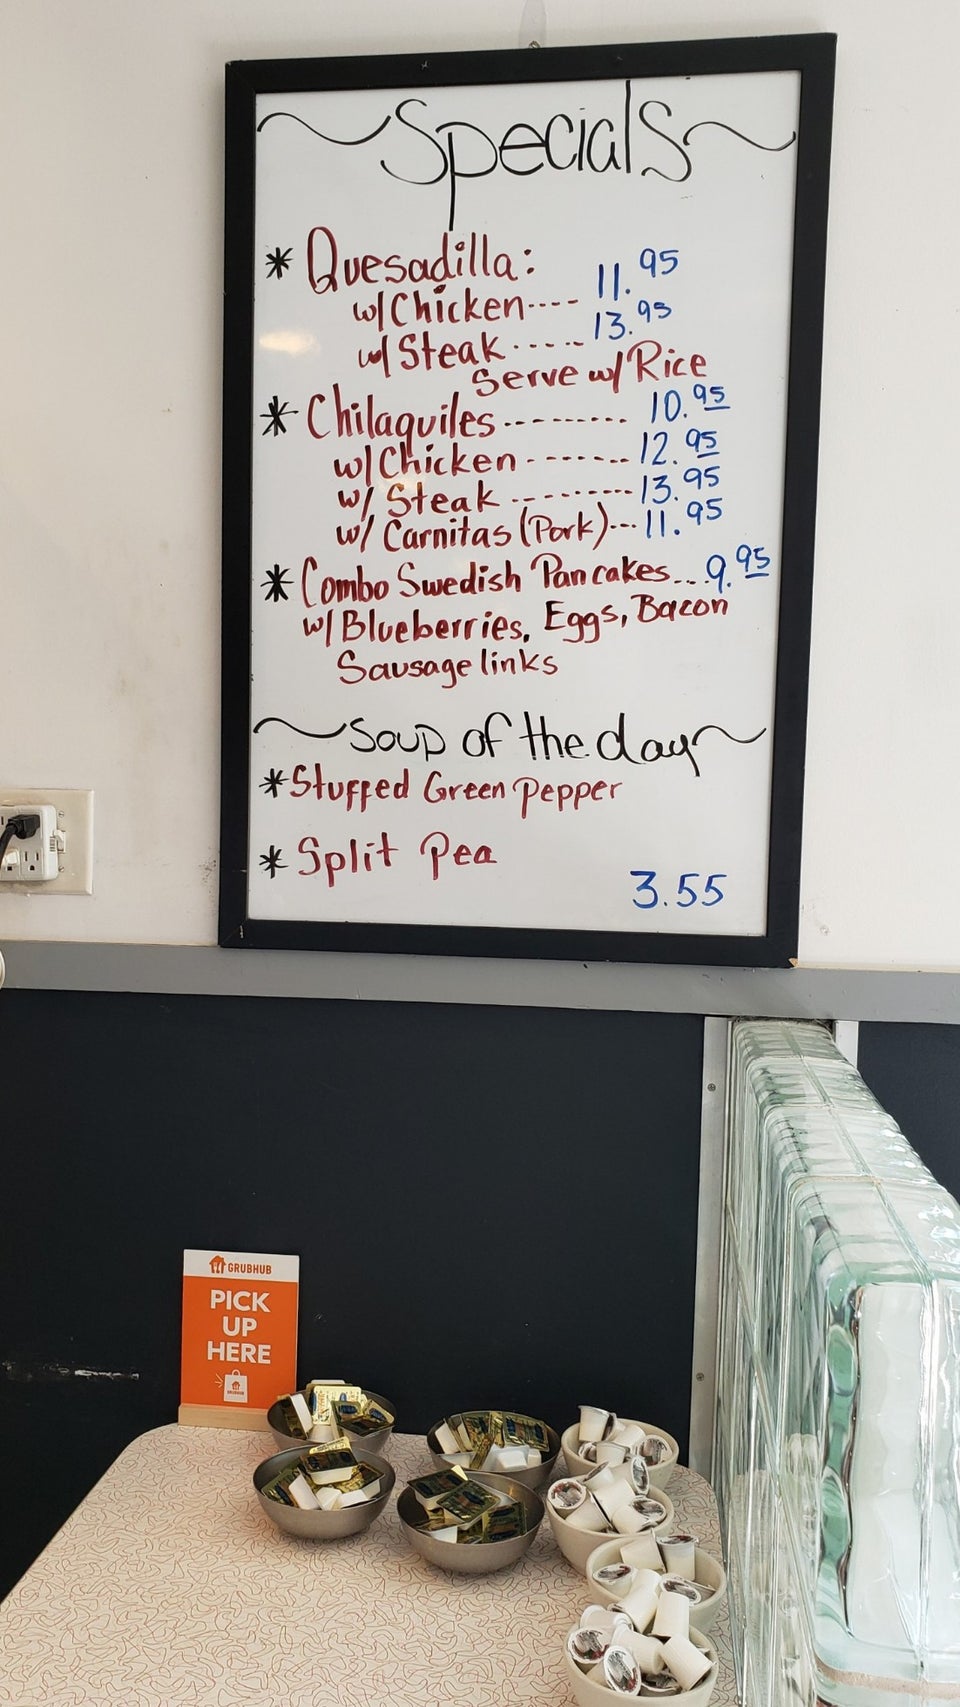 ~Specials~
* Quesadilla:
w/Chicken---- 11.95
w/Steak ----- 13.95
Serve w/ Rice
* Chilaquiles --------- 10.95
w/Chicken ------- 12.95
w/ Steak ---------- 13.95
w/ Carnitas (Pork)--- 11.95
* Combo Swedish Pancakes... 9.95
w/Blueberries, Eggs, Bacon
Sausage links
~Soup of the day~
* Stuffed Green Pepper
* Split Pea
3.55
GRUBHUB
PICK
UP
HERE
GRUBHUB